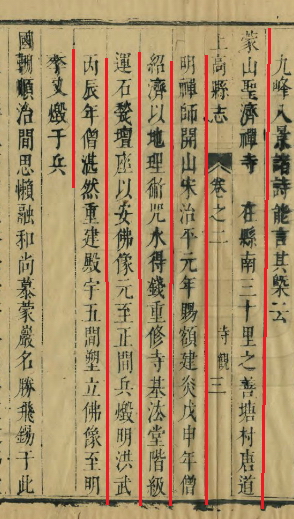 九峰八景諸詩能言其槩云
蒙山聖濟禪寺 在縣南三十里之善塘村唐道
上高縣志 卷之二 寺觀 三
明禪師開山宋治平元年賜額建炎戊申年僧
紹濟以地理術咒水得錢重修寺基法堂階級
運石甃壇座以安佛像元至正間兵燬明洪武
丙辰年僧湛然重建殿宇五間塑立佛像至明
季又燬于兵
國朝順治間思懶融和尚慕蒙巖名勝飛錫于此